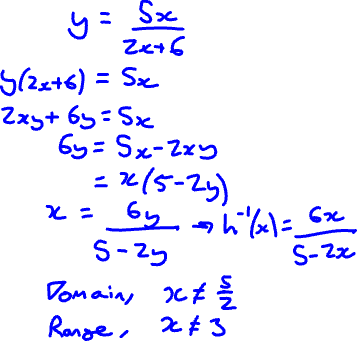 y = 5x/(2x+6)
y(2x+6) = 5x
2xy + 6y = 5x
6y = 5x - 2xy
= x(5-2y)
x = 6y/(5-2y) → h⁻¹(x) = 6x/(5-2x)
Domain, x ≠ 5/2
Range, x ≠ 3